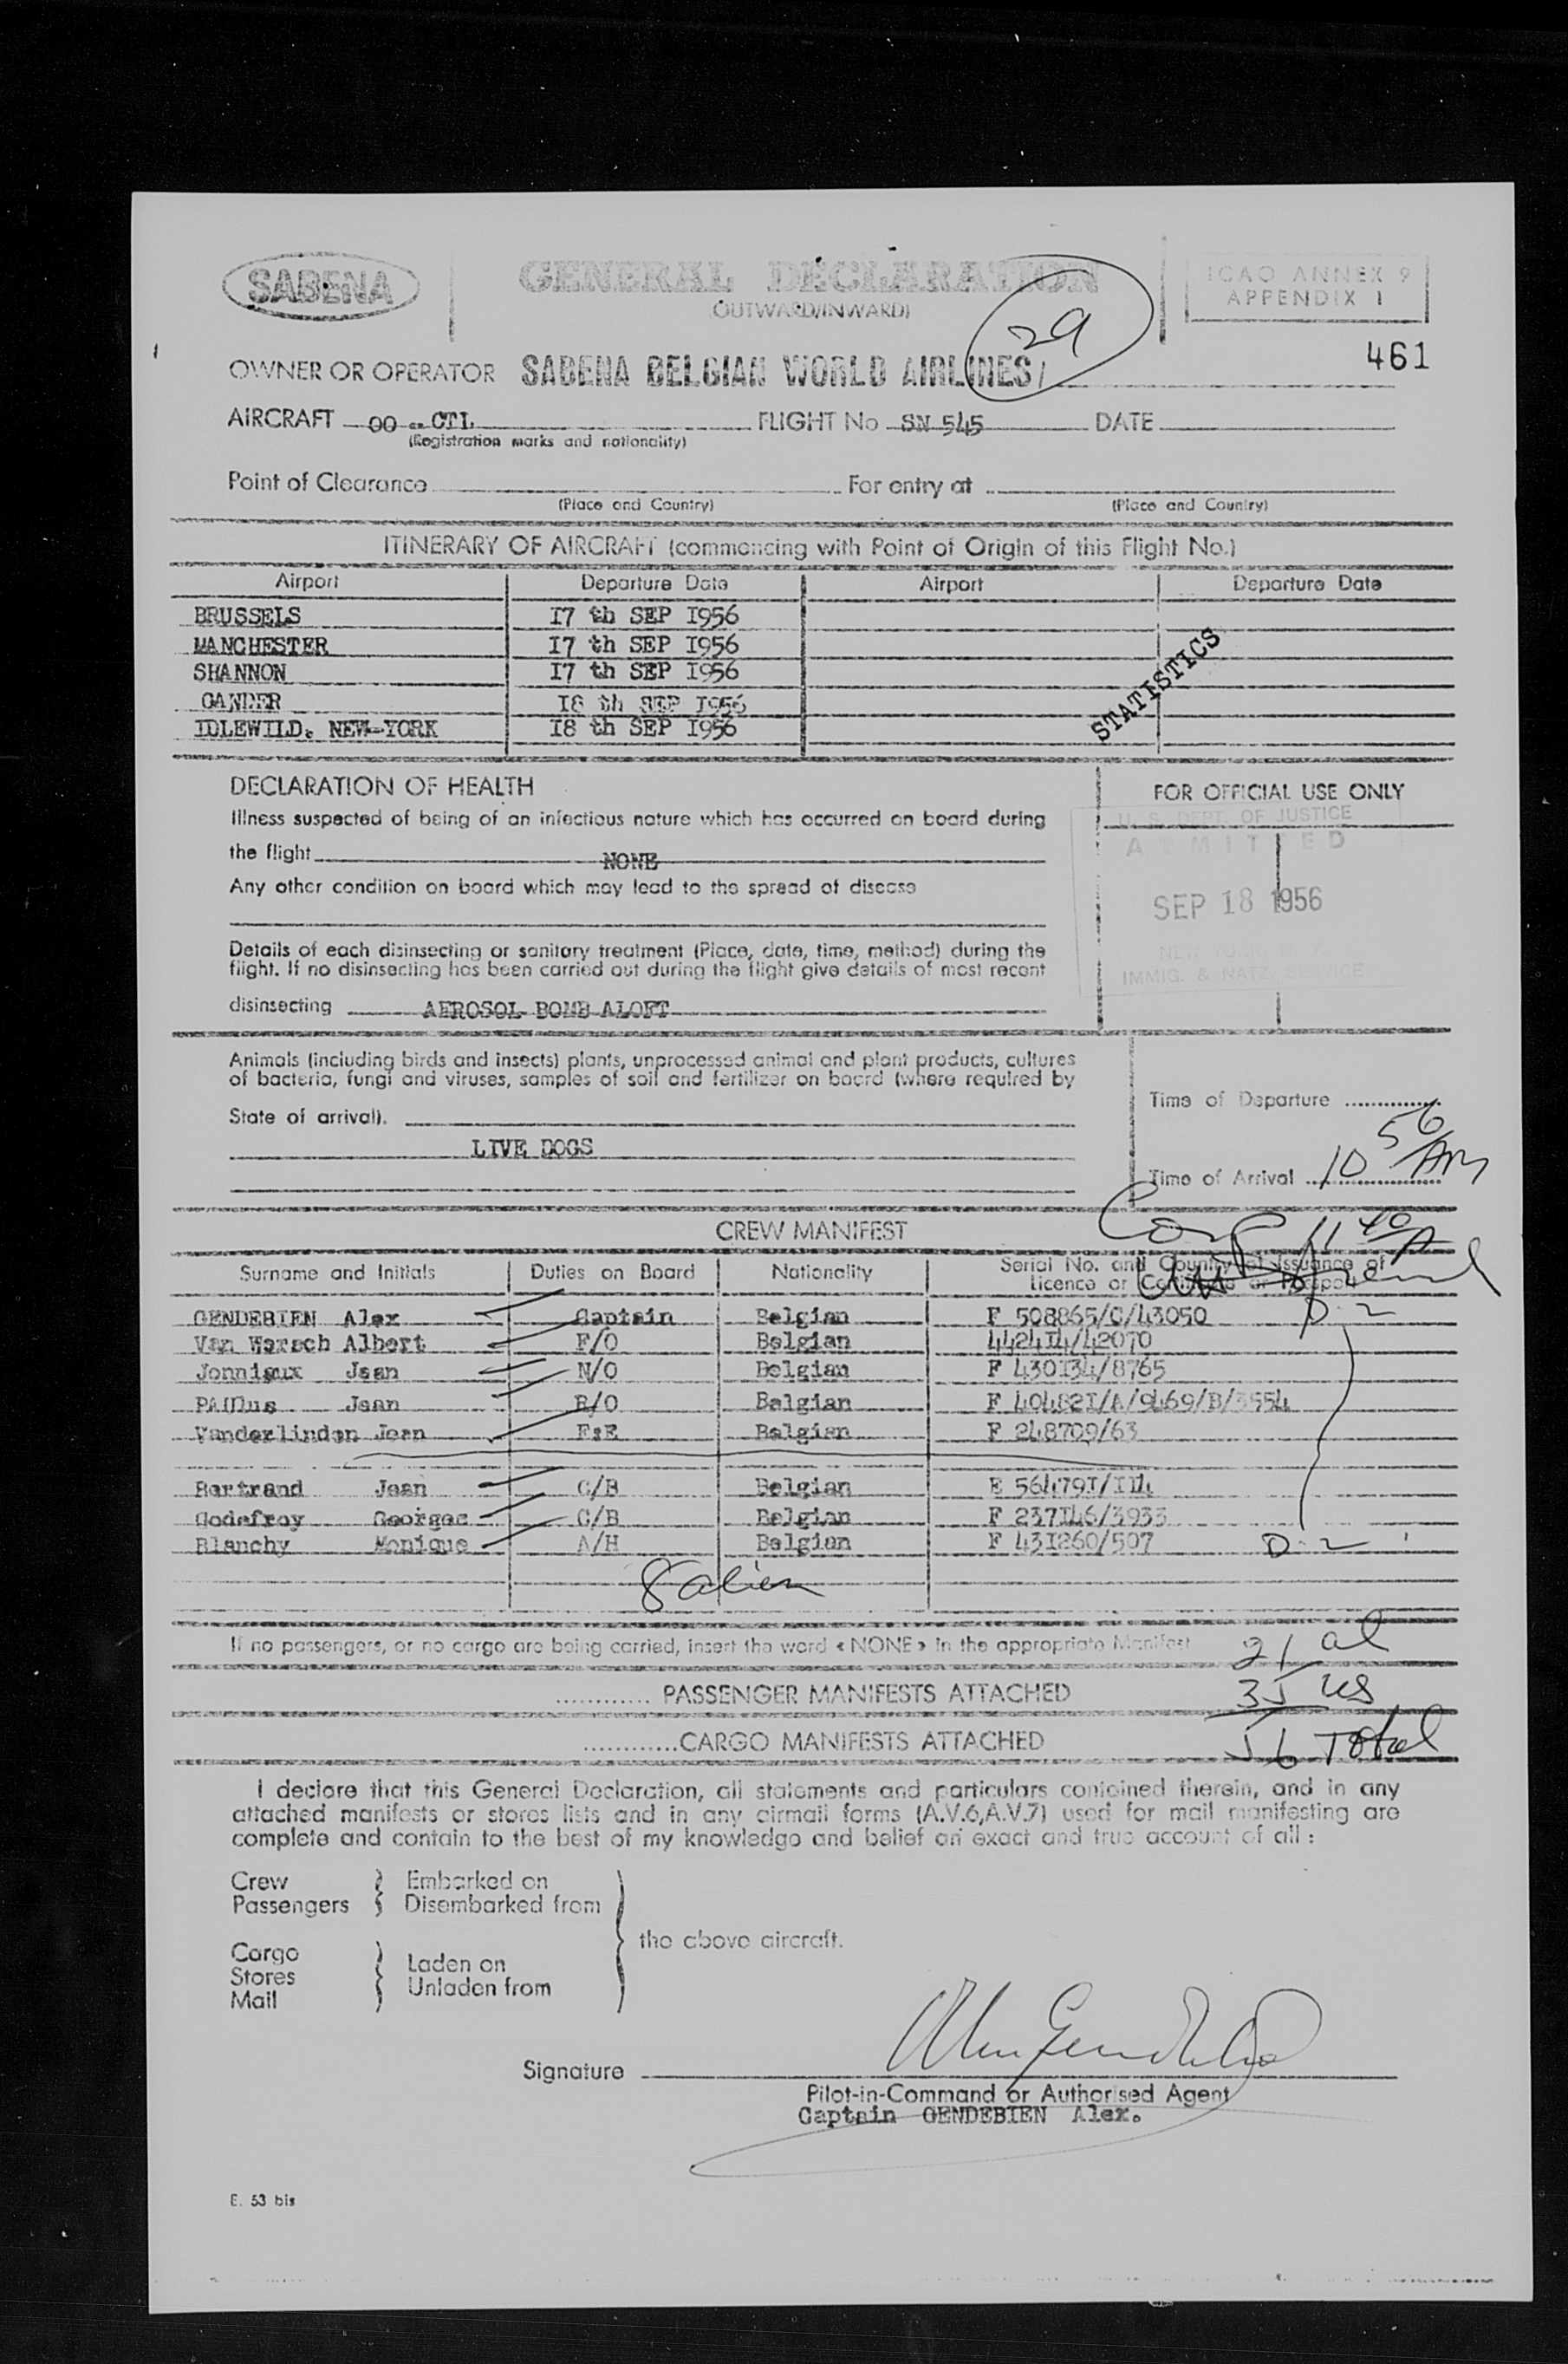 SABENA
GENERAL DECLARATION
(OUTWARD/INWARD)
ICAO ANNEX 9
APPENDIX 1
29
461
OWNER OR OPERATOR SABENA BELGIAN WORLD AIRLINES
AIRCRAFT OO - CTL FLIGHT No SN 545 DATE
(Registration marks and nationality)
Point of Clearance For entry at
(Place and Country) (Place and Country)
ITINERARY OF AIRCRAFT (commencing with Point of Origin of this Flight No.)
Airport Departure Date Airport Departure Date
BRUSSELS I7 th SEP I956
MANCHESTER I7 th SEP I956
SHANNON I7 th SEP I956
GANDER I8 th SEP I956
IDLEWILD. NEW-YORK I8 th SEP I956
STATISTICS
DECLARATION OF HEALTH
Illness suspected of being of an infectious nature which has occurred on board during
the flight NONE
Any other condition on board which may lead to the spread of disease
Details of each disinsecting or sanitary treatment (Place, date, time, method) during the
flight. If no disinsecting has been carried out during the flight give details of most recent
disinsecting AEROSOL BOMB ALOFT
FOR OFFICIAL USE ONLY
U. S. DEPT. OF JUSTICE
ADMITTED
SEP 18 1956
NEW YORK, N. Y.
IMMIG. & NATZ. SERVICE
Animals (including birds and insects) plants, unprocessed animal and plant products, cultures
of bacteria, fungi and viruses, samples of soil and fertilizer on board (where required by
State of arrival).
LIVE DOGS
Time of Departure
Time of Arrival 10 56 AM
CREW MANIFEST
Surname and Initials Duties on Board Nationality Serial No. and Country of Issuance of
Licence or Certificate or Passport
11 40 A
GENDEBIEN Alex Captain Belgian F 508865/C/43050 D-2
Van Warsch Albert F/O Belgian 4424I4/42070
Jonniaux Jean N/O Belgian F 430I34/8765
PAUlus Jean R/O Belgian F 40482I/A/9469/B/3554
Vanderlinden Jean F:E Belgian F 248709/63
Bertrand Jean C/B Belgian E 56479I/II4
Godefroy Georges C/B Belgian F 237I46/3933
Blanchy Monique A/H Belgian F 43I260/507 D-2
8 alien
If no passengers, or no cargo are being carried, insert the word « NONE » in the appropriate Manifest
21 al
35 us
56 Total
PASSENGER MANIFESTS ATTACHED
CARGO MANIFESTS ATTACHED
I declare that this General Declaration, all statements and particulars contained therein, and in any
attached manifests or stores lists and in any airmail forms (A.V.6,A.V.7) used for mail manifesting are
complete and contain to the best of my knowledge and belief an exact and true account of all :
Crew Embarked on
Passengers Disembarked from
the above aircraft.
Cargo
Stores Laden on
Mail Unladen from
Signature
Pilot-in-Command or Authorised Agent
Captain GENDEBIEN Alex.
E. 53 bis